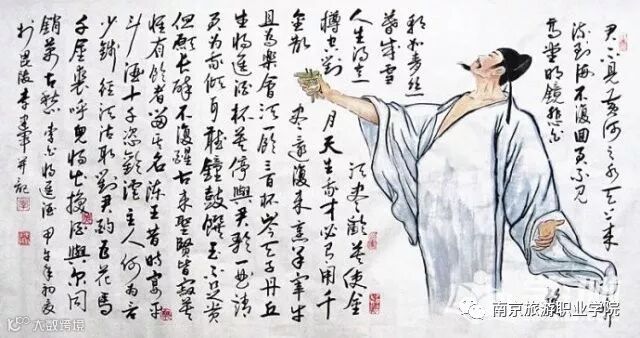 君不見黄河之水天上来
流到海不復回君不見
高堂明鏡悲白
朝如青丝
暮成雪
人生得意
須盡歡莫使金
樽空對月天生我才必有用千
金散盡還復来烹羊宰牛
且為樂會須一飲三百杯岑夫子丹丘
生將進酒杯莫停與君歌一曲請
君為我傾耳聽鐘鼓饌玉不足貴
但願長醉不復醒古来聖賢皆寂莫
惟有飲者留其名陳王昔時宴平
斗酒十千恣歡謔主人何為言
少錢徑須沽取對君酌五花馬
千金裘呼兒將出換酒與尔同
銷万古愁李白將進酒甲午年初夏
於毘陵李軍并記
大数跨境
南京旅游职业学院